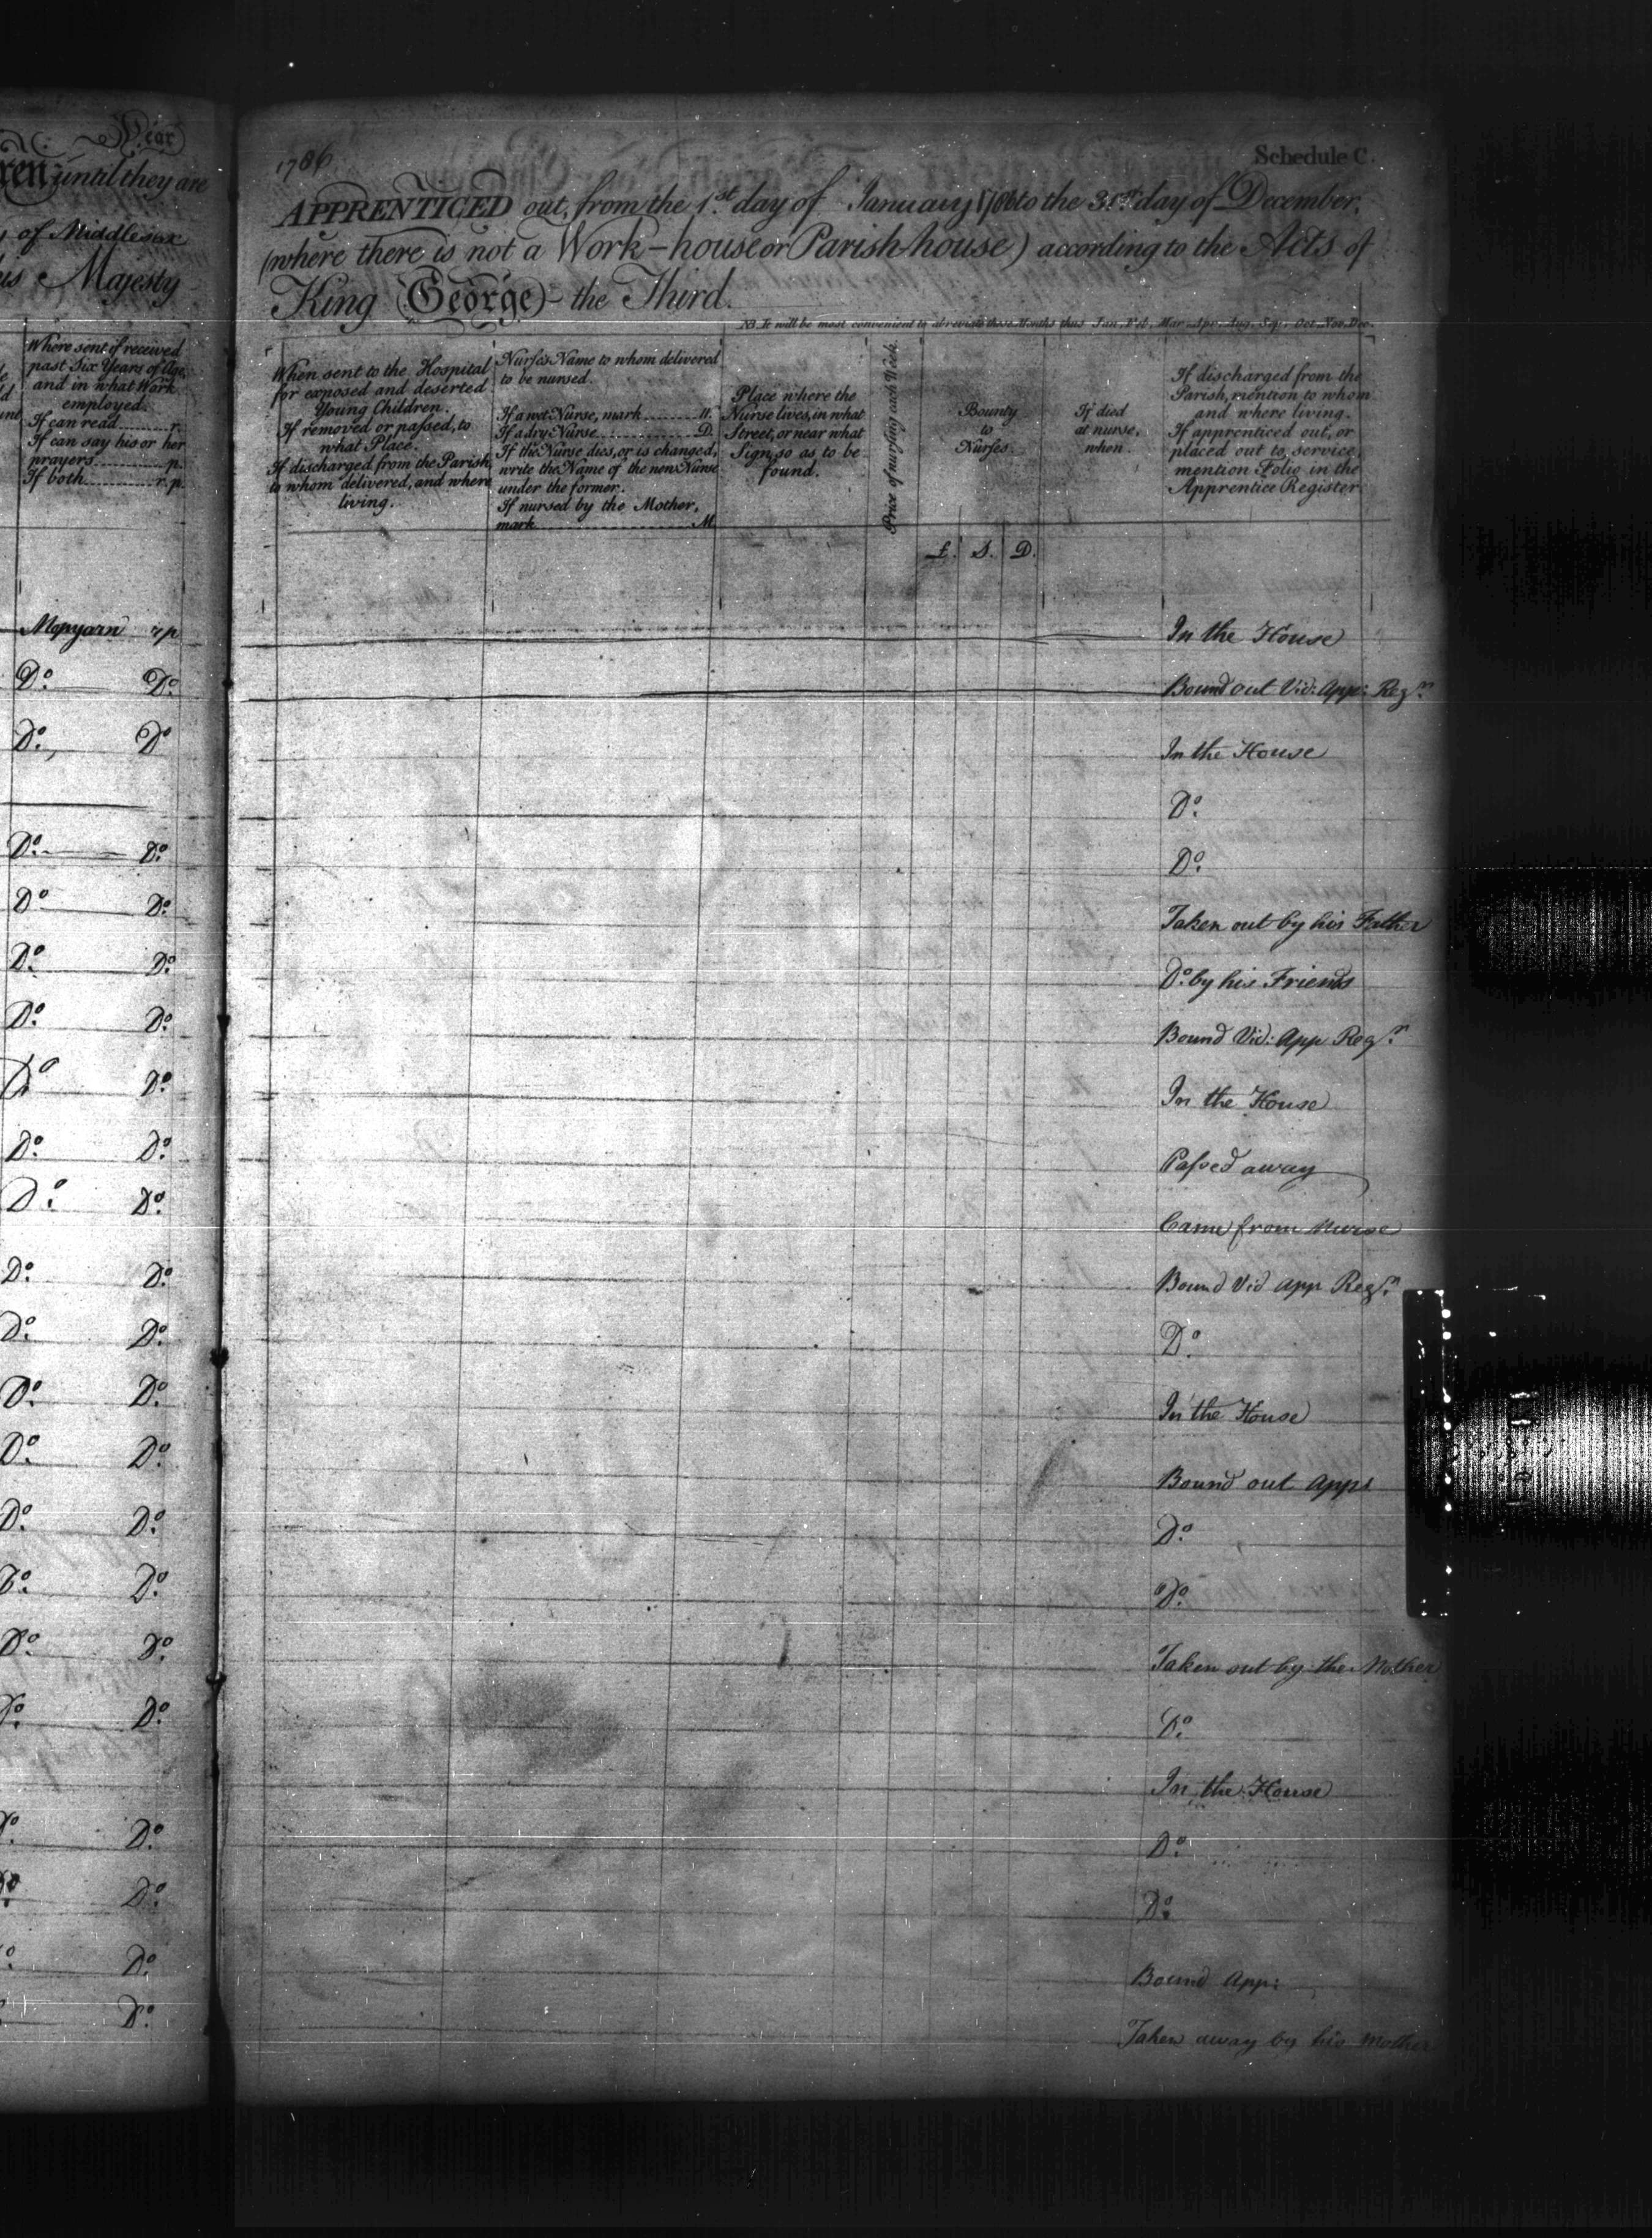 Year
ren until they are
of Middlesex
his Majesty
Where sent if received
past Six Years of Age,
and in what Work
employed.
If can read r.
If can say his or her
prayers p.
If both r. p.
Mopyarn r p
Do. Do.
Do. Do
Do. Do.
Do Do.
Do. Do.
Do. Do.
Do Do.
Do. Do.
Do. Do.
Do. Do.
Do. Do.
Do. Do.
Do. Do.
Do. Do.
Do. Do.
Do. Do.
Do. Do.
Do.
Do. Do.
Do.
Do.
1786
Schedule C.
APPRENTICED out, from the 1st. day of January 1786 to the 31st. day of December,
(where there is not a Work-house or Parish house) according to the Acts of
King George the Third.
NB. It will be most convenient to abreviate these Months thus Jan, Feb, Mar. Apr. Aug. Sep. Oct. Nov. Dec.
When sent to the Hospital
for exposed and deserted
Young Children.
If removed or passed, to
what Place.
If discharged from the Parish,
to whom delivered, and where
living.
Nurse's Name to whom delivered
to be nursed.
If a wet Nurse, mark W.
If a dry Nurse D.
If the Nurse dies, or is changed,
write the Name of the new Nurse
under the former.
If nursed by the Mother,
mark M.
Place where the
Nurse lives, in what
Street, or near what
Sign, so as to be
found.
Price of nursing each Week.
Bounty
to
Nurses.
£. S. D.
If died
at nurse,
when.
If discharged from the
Parish, mention to whom
and where living.
If apprenticed out, or
placed out to service,
mention Folio in the
Apprentice Register.
In the House
Bound out Vid: App: Regr.
In the House
Do.
Do.
Taken out by his Father
Do. by his Friends
Bound Vid: App Regr.
In the House
Passed away
Came from Nurse
Bound Vid App Regr.
Do.
In the House
Bound out Apps
Do.
Do.
Taken out by the Mother
Do.
In the House
Do.
Do.
Bound App:
Taken away by his Mother